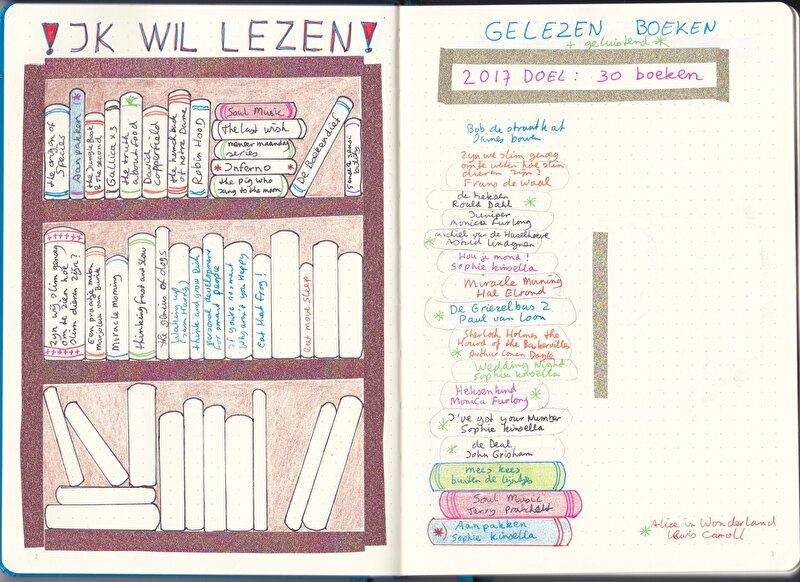 !IK WIL LEZEN!
the origin of
Species
Aanpakken
the Jungle Book
& the second
Gallica x3
the truth
about Food
David
Copperfield
the hunchback
of notre Dame
Robin Hood
Soul Music
the last wish
meneer maandag
series
Inferno
the pig who
sang to the moon
De Boekendief
zijn wij slim genoeg
om te zien hoe
slim dieren zijn?
Een praatje met
Marjolein
Miracle Morning
thinking fast and slow
The genius of dogs
Waking up
(sam Harris)
think and grow Rich
Personal development
for smart people
if you're so smart
Why aren't you Happy
eat that frog!
eat move sleep
GELEZEN BOEKEN
+ geluisterd *
2017 DOEL: 30 boeken
Bob de straatkat
James bowen
Zijn we slim genoeg
om te weten hoe slim
dieren zijn?
Frans de Waal
de heksen
Roald Dahl
Juniper
Monica Furlong
michiel van de Hazelhoeve
Astrid Lindgren
Hou je mond!
Sophie kinsella
Miracle Morning
Hal Elrond
De Griezelbus 2
Paul van Loon
Sherlock Holmes the
Hound of the Baskervilles
Arthur Conan Doyle
Wedding Night
Sophie kinsella
Heksenkind
Monica Furlong
I've got your Number
Sophie kinsella
de Deal
John Grisham
mees kees
buiten de lijntjes
Soul Music
Terry Pratchett
Aanpakken
Sophie kinsella
Alice in Wonderland
Lewis Carroll
2
3